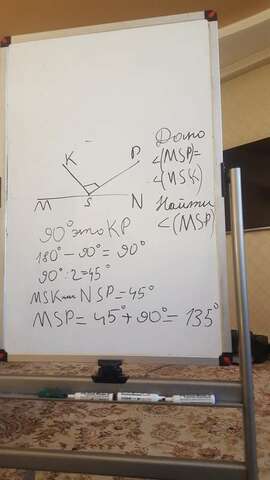 K
P
M
S
N
Дано
<(MSP)=
<(NSK)
Найти
<(MSP)
90° это KP
180° - 90° = 90°
90° : 2 = 45°
MSK или NSP = 45°
MSP = 45° + 90° = 135°